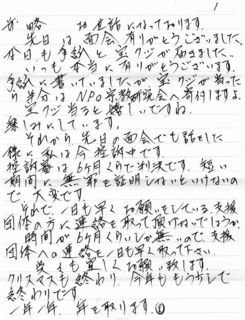 1
前略 お世話になっております。
先日は面会ありがとうございました。
今日も手紙と宝クジが届きました。
いつも本当に有りがとうございます。
手紙に書いていましたが宝クジが当った
ら半分はNPO宗教研究会へ寄付しますよ。
宝クジ当ると嬉しいですね。
楽しみにしています。
それから先日の面会でも話をした
様に私は今控訴中です。
控訴審は6ヶ月くらいで判決です。短い
期間に無罪を証明しないといけないの
で、大変です。
それで一日も早くお願いをしている支援
団体の方に連絡を取って頂けないでしょうか。
時間が6ヶ月くらいしか無いので、支援
団体への連絡を一日も早く取って下さい。
呉々も宜しくお願い致します。
クリスマスも終わり、今年ももう少しで
終わりです。
一年一年、年を取ります。